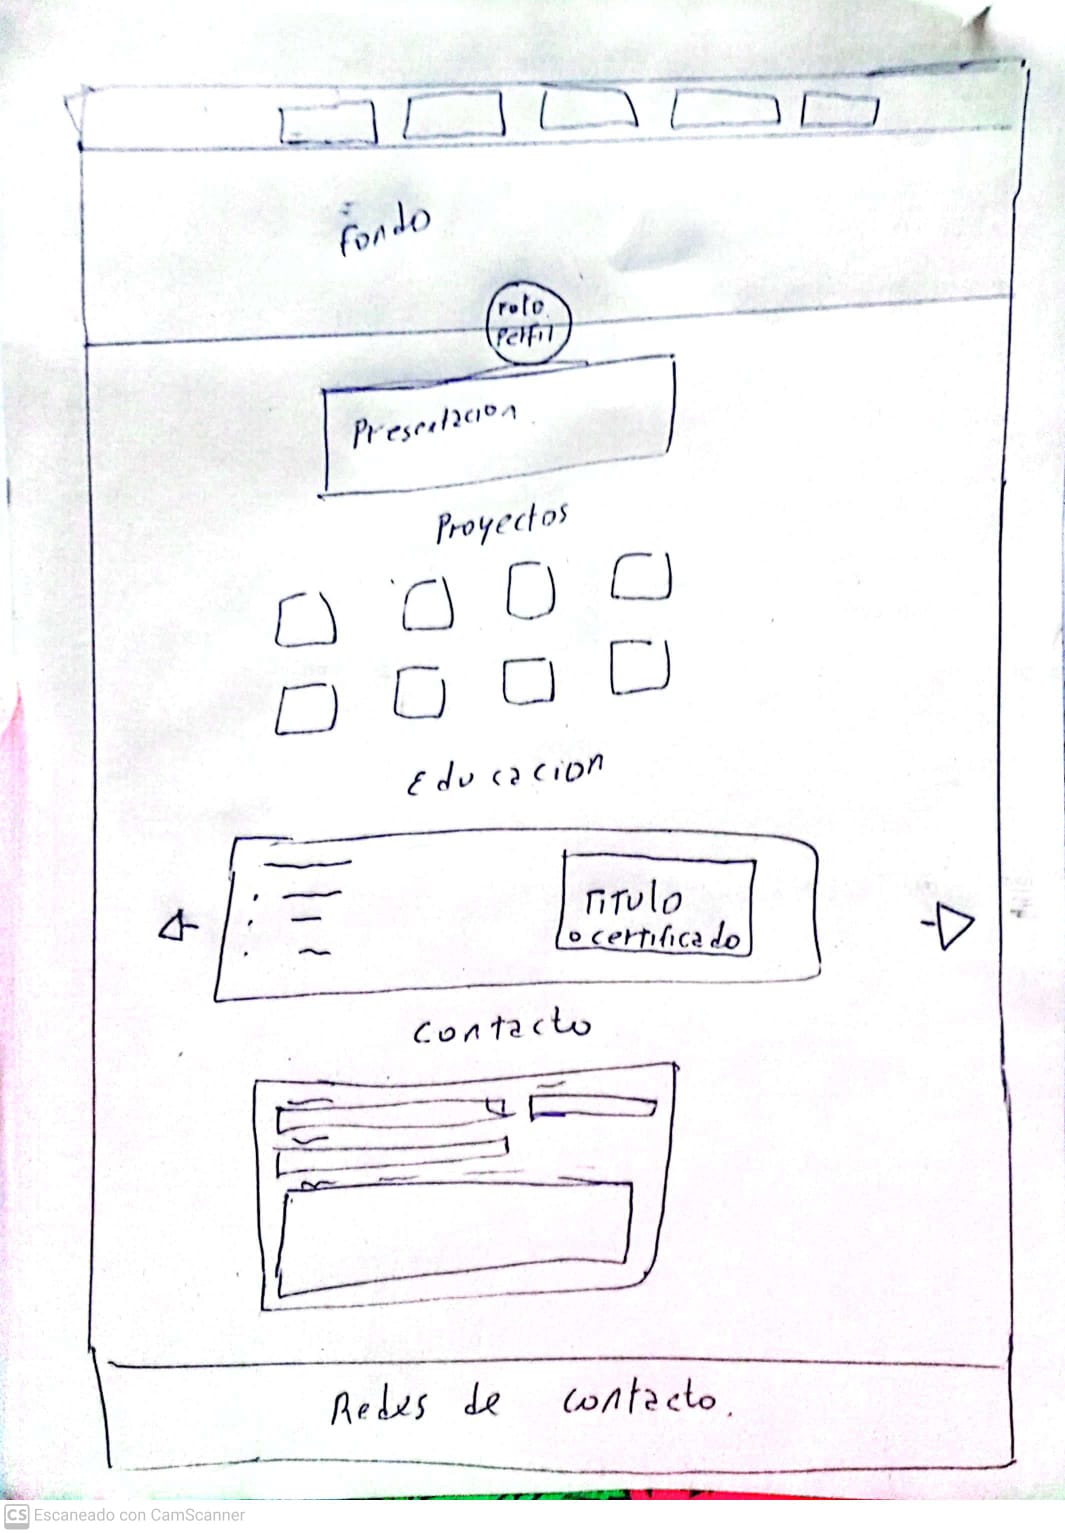 Fondo
Foto
Perfil
Presentacion
Proyectos
Educacion
Titulo
o certificado
Contacto
Redes de contacto.
CS Escaneado con CamScanner